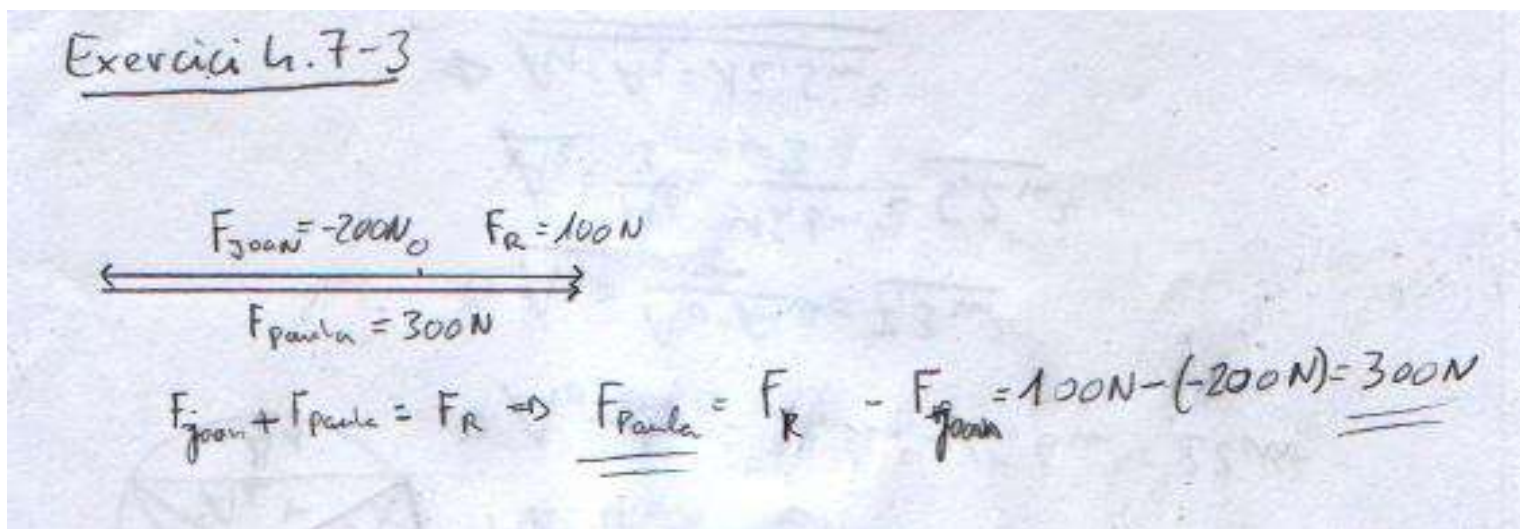 Exercici h.7-3
F Joan = -200N O F R = 100 N
F Paula = 300 N
F Joan + F Paula = F R => F Paula = F R - F Joan = 100N - (-200N) = 300N